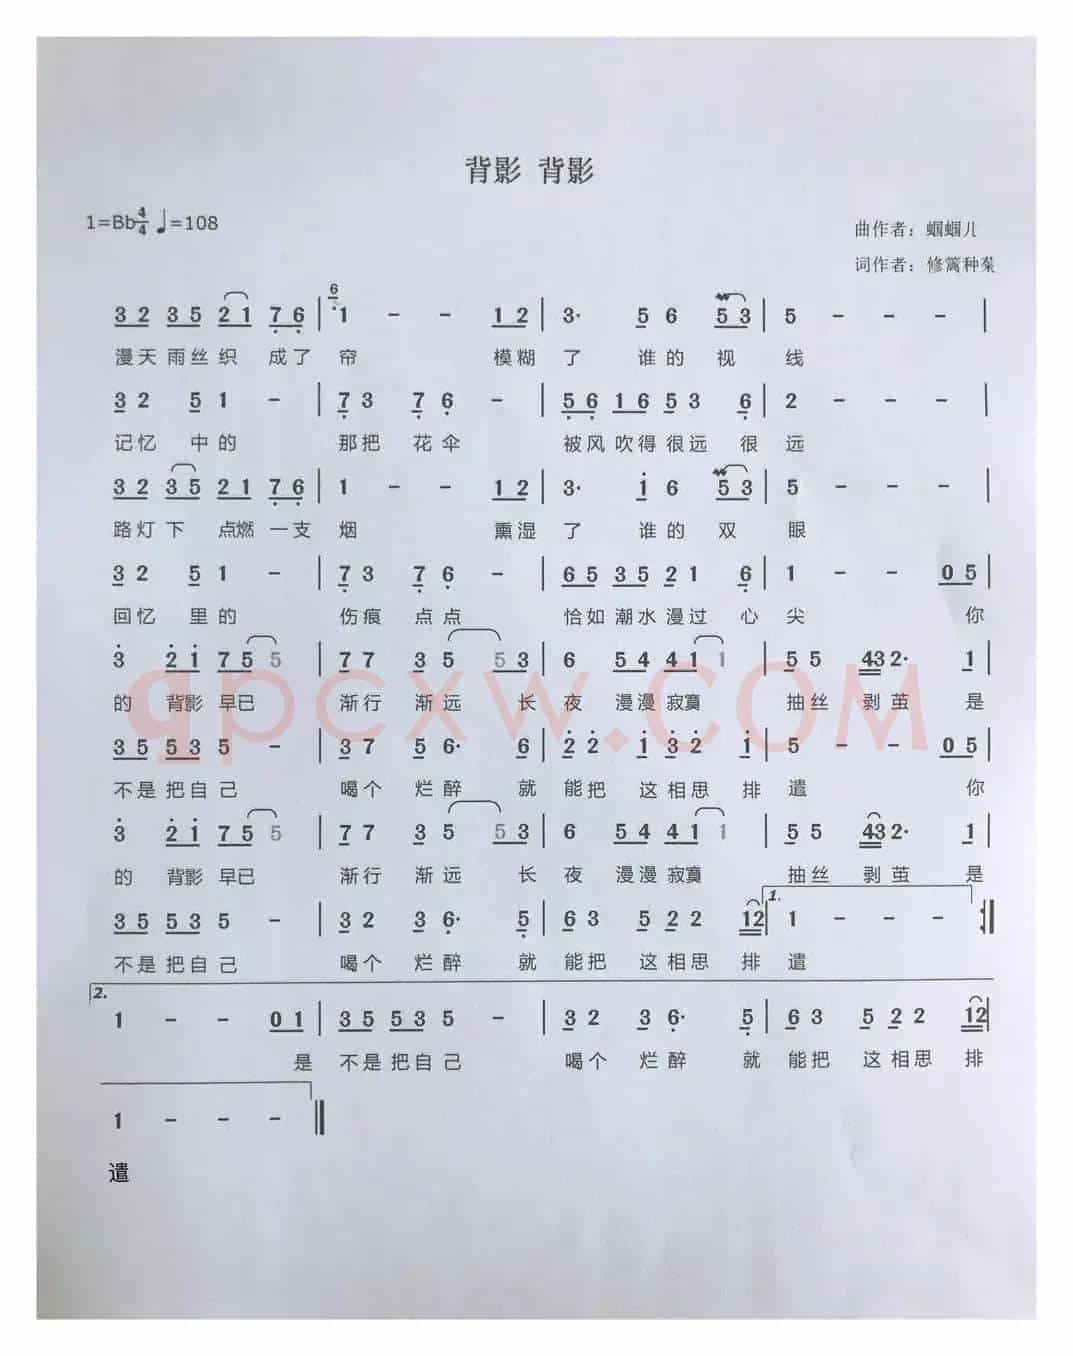 背影 背影
1=Bb 4/4 ♩=108
曲作者：蝈蝈儿
词作者：修篱种菊
6
3 2 3 5 2 1 7 6 | 1 - - 1 2 | 3· 5 6 5 3 | 5 - - - |
漫天 雨丝 织 成了 帘 模糊 了 谁的 视 线
3 2 5 1 - | 7 3 7 6 - | 5 6 1 6 5 3 6 | 2 - - - |
记忆 中的 那把 花伞 被风 吹得 很远 很 远
3 2 3 5 2 1 7 6 | 1 - - 1 2 | 3· i 6 5 3 | 5 - - - |
路灯 下 点燃 一支 烟 熏湿 了 谁的 双 眼
3 2 5 1 - | 7 3 7 6 - | 6 5 3 5 2 1 6 | 1 - - 0 5 |
回忆 里的 伤痕 点点 恰如 潮水 漫过 心 尖 你
3 2 i 7 5 5 | 7 7 3 5 5 3 | 6 5 4 4 1 1 | 5 5 43 2· 1 |
的 背影 早已 渐行 渐远 长 夜 漫漫 寂寞 抽丝 剥茧 是
3 5 5 3 5 - | 3 7 5 6· 6 | 2 2 i 3 2 i | 5 - - 0 5 |
不是 把自己 喝个 烂醉 就 能把 这相思 排 遣 你
3 2 i 7 5 5 | 7 7 3 5 5 3 | 6 5 4 4 1 1 | 5 5 43 2· 1 |
的 背影 早已 渐行 渐远 长 夜 漫漫 寂寞 抽丝 剥茧 是
1.
3 5 5 3 5 - | 3 2 3 6· 5 | 6 3 5 2 2 12 | 1 - - - :||
不是 把自己 喝个 烂醉 就 能把 这相思 排 遣
2.
1 - - 0 1 | 3 5 5 3 5 - | 3 2 3 6· 5 | 6 3 5 2 2 12 |
是 不是 把自己 喝个 烂醉 就 能把 这相思 排
1 - - - ||
遣
qpcxw.COM